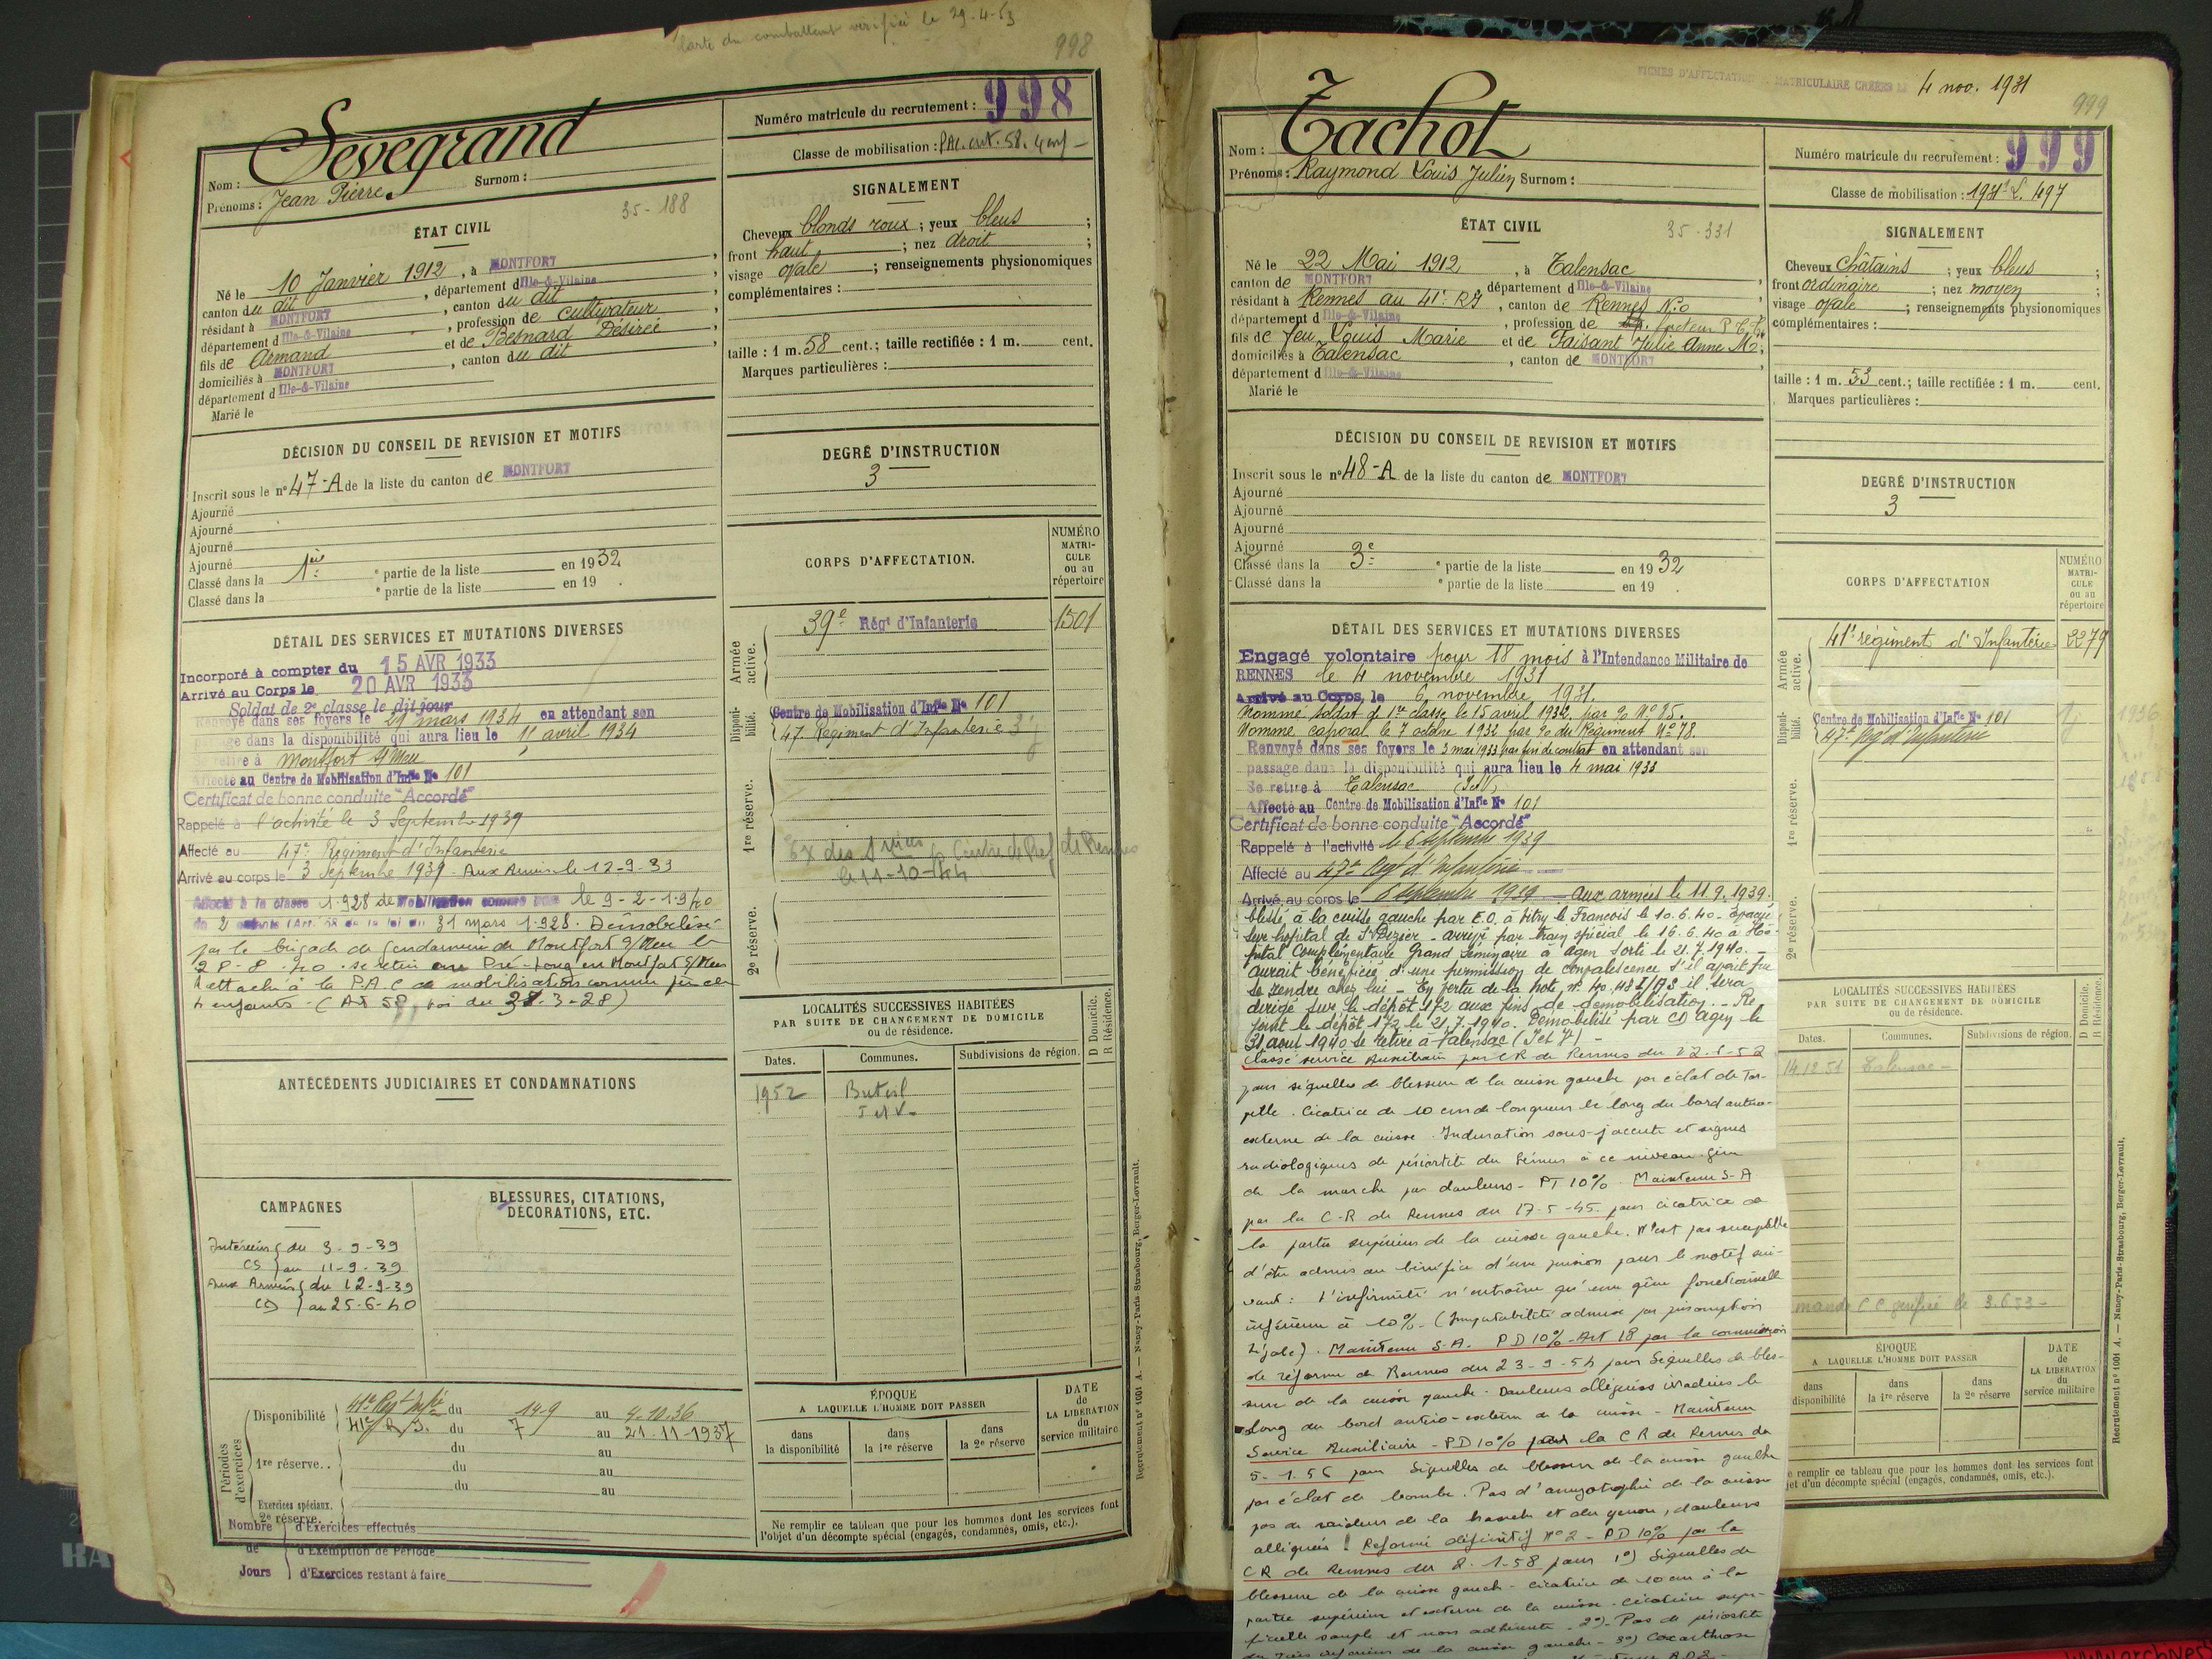 Carte du combattant vérifiée le 29-4-53
998
Sevegrand
Nom :
Prénoms : Jean Pierre Surnom :
Numéro matricule du recrutement : 998
Classe de mobilisation :
35-188
ÉTAT CIVIL
Né le 10 Janvier 1912, à MONTFORT,
canton du dit, département d'Ille-&-Vilaine,
résidant à MONTFORT, canton du dit,
département d'Ille-&-Vilaine, profession de cultivateur,
fils de Armand et de Besnard Désirée,
domiciliés à MONTFORT, canton du dit
département d'Ille-&-Vilaine
Marié le
SIGNALEMENT
Cheveux blonds roux ; yeux bleus ;
front haut ; nez droit ;
visage ovale ; renseignements physionomiques
complémentaires :
taille : 1 m. 58 cent. ; taille rectifiée : 1 m. cent.
Marques particulières :
DÉCISION DU CONSEIL DE REVISION ET MOTIFS
Inscrit sous le n° 47-A de la liste du canton de MONTFORT
Ajourné
Ajourné
Ajourné
Ajourné
Classé dans la 1ère partie de la liste en 1932
Classé dans la e partie de la liste en 19 .
DEGRÉ D'INSTRUCTION
3
DÉTAIL DES SERVICES ET MUTATIONS DIVERSES
Incorporé à compter du 15 AVR 1933
Arrivé au Corps le 20 AVR 1933
Soldat de 2e classe le dit jour
Renvoyé dans ses foyers le 21 mars 1934 en attendant son
passage dans la disponibilité qui aura lieu le avril 1934
Se retire à Montfort s/ Meu
Affecté au Centre de Mobilisation d'Infie No 101
Certificat de bonne conduite "Accordé"
Rappelé à l'activité le 3 Septembre 1939
Affecté au 47e Régiment d'Infanterie
Arrivé au corps le 3 Septembre 1939 - Aux Armées le 12-9-39
Affecté à la classe 1928 de Mobilisation comme père le 9-2-1940
de 2 enfants (Art. 58 de la loi du 31 mars 1928. Démobilisé
par la brigade de Gendarmerie de Montfort s/Meu le
28-8-40. se retire au Pré-Long en Montfort s/Meu
Rattaché à la P.A.C de mobilisation comme père de
4 enfants - (Art 58, loi du 31-3-28)
CORPS D'AFFECTATION.
NUMÉRO MATRICULE ou au répertoire
Armée active.
39e Régt d'Infanterie 1501
Disponibilité.
Centre de Mobilisation d'Infie No 101
47e Régiment d'Infanterie
1re réserve.
le 11-10-44
2e réserve.
ANTÉCÉDENTS JUDICIAIRES ET CONDAMNATIONS
LOCALITÉS SUCCESSIVES HABITÉES
PAR SUITE DE CHANGEMENT DE DOMICILE
ou de résidence.
D Domicile.
R Résidence.
Dates. Communes. Subdivisions de région.
1952 Breteil
I et V-
CAMPAGNES
Intérieur du 3-9-39
CS au 11-9-39
Aux Armées du 12-9-39
CD au 25-6-40
BLESSURES, CITATIONS,
DÉCORATIONS, ETC.
Périodes d'exercices
Disponibilité 41e Régt Infie du 14-9 au 4.10.36
41e R.I. du 7 au 21-11-1937
du au
1re réserve.. du au
du au
Exercices spéciaux.
2e réserve
Nombre de Jours
d'Exercices effectués
d'Exemption de Période
d'Exercices restant à faire
ÉPOQUE
A LAQUELLE L'HOMME DOIT PASSER
dans la disponibilité
dans la 1re réserve
dans la 2e réserve
DATE de LA LIBÉRATION du service militaire
Ne remplir ce tableau que pour les hommes dont les services font
l'objet d'un décompte spécial (engagés, condamnés, omis, etc.).
Recrutement n° 1001 A. — Nancy-Paris-Strasbourg, Berger-Levrault.
FICHES D'AFFECTATION MATRICULAIRE CRÉÉES LE 4 nov. 1931
999
Nom : Tachot
Prénoms : Raymond Louis Julien Surnom :
Numéro matricule du recrutement : 999
Classe de mobilisation :
35-331
ÉTAT CIVIL
Né le 22 Mai 1912, à Talensac
canton de MONTFORT, département d'Ille-&-Vilaine,
résidant à Rennes au 41e RI, canton de Rennes N.O
département d'Ille-&-Vilaine, profession de facteur P.T.T.
fils de feu Louis Marie et de Faisant Julie Anne M.
domiciliés à Talensac, canton de MONTFORT,
département d'Ille-&-Vilaine
Marié le
SIGNALEMENT
Cheveux châtains ; yeux bleus ;
front ordinaire ; nez moyen ;
visage ovale ; renseignements physionomiques
complémentaires :
taille : 1 m. 53 cent. ; taille rectifiée : 1 m. cent.
Marques particulières :
DÉCISION DU CONSEIL DE REVISION ET MOTIFS
Inscrit sous le n° 48-A de la liste du canton de MONTFORT
Ajourné
Ajourné
Ajourné
Ajourné
Classé dans la 3e partie de la liste en 1932
Classé dans la e partie de la liste en 19 .
DEGRÉ D'INSTRUCTION
3
DÉTAIL DES SERVICES ET MUTATIONS DIVERSES
Engagé volontaire pour 18 mois à l'Intendance Militaire de
RENNES le 4 novembre 1931
Arrivé au Corps, le 6 novembre 1931.
Nommé soldat de 1re classe le 15 avril 1932 par No 85.
Nommé caporal le 7 octobre 1932 par du Régiment No 78.
Renvoyé dans ses foyers le 3 mai 1933 par fin de contrat en attendant son
passage dans la disponibilité qui aura lieu le 4 mai 1933
Se retire à Talensac (I et V)
Affecté au Centre de Mobilisation d'Infie No 101
Certificat de bonne conduite "Accordé"
Rappelé à l'activité le 6 septembre 1939
Affecté au 47e Régt d'Infanterie
Arrivé au corps le 6 septembre 1939 - Aux armées le 11.9.1939.
blessé à la cuisse gauche par E.O. à Vitry le François le 10.6.40 - Evacué
sur hôpital de St Dizier - arrivé par train spécial le 16.6.40 à Hô-
pital Complémentaire Grand Séminaire à Agen Sorti le 21.7.1940. -
aurait bénéficié d'une permission de convalescence s'il avait pu
se rendre chez lui - En vertu de la note il sera
dirigé sur le dépôt 172 aux fins de démobilisation. - Re
joint le dépôt 172 le 21.7.1940. Démobilisé par CD Agen le
31 août 1940 se retire à Talensac (I et V) -
Classé service Auxiliaire par CR de Rennes du
pour séquelles de blessure de la cuisse gauche par éclat de tor-
pille. Cicatrice de 10 cm de longueur le long du bord antéro-
externe de la cuisse. Induration sous-jacente et signes
radiologiques de périostite du fémur à ce niveau. gêne
de la marche par douleurs - PT 10% - Maintenu S-A
par la C-R de Rennes du 17-5-45 pour cicatrice de
la partie supérieure de la cuisse gauche. N'est pas susceptible
d'être admis au bénéfice d'une pension pour le motif sui-
vant : L'infirmité n'entraîne qu'une gêne fonctionnelle
inférieure à 10% - (Imputabilité admise par présomption
légale). Maintenu S-A. PD 10% - Art 18 par la commission
de réforme de Rennes du 23-9-54 pour Séquelles de bles-
sure de la cuisse gauche - Douleurs alléguées irradiées le
long du bord antéro-externe de la cuisse - Maintenu
Service Auxiliaire - PD 10% par la CR de Rennes du
5-1.56 pour Séquelles de blessure de la cuisse gauche
par éclat de bombe. Pas d'amyotrophie de la cuisse
pas de raideur de la hanche et du genou, douleurs
alléguées. Réformé définitif No 2 - PD 10% par la
CR de Rennes du 8-1-58 pour 1°) Séquelles de
blessure de la cuisse gauche - cicatrice de 10 cm à la
partie supérieure et externe de la cuisse. Cicatrice super-
ficielle souple et non adhérente - 2°) Pas de périostite
du tiers inférieur de la cuisse gauche - 3°) Coxarthrose
CORPS D'AFFECTATION
NUMÉRO MATRICULE ou au répertoire
Armée active.
41e régiment d'Infanterie 2279
Disponibilité.
Centre de Mobilisation d'Infie No 101
47e Régt d'Infanterie
1936
1re réserve.
2e réserve.
LOCALITÉS SUCCESSIVES HABITÉES
PAR SUITE DE CHANGEMENT DE DOMICILE
ou de résidence.
D Domicile.
R Résidence.
Dates. Communes. Subdivisions de région.
14.12.51 Talensac -
ÉPOQUE
A LAQUELLE L'HOMME DOIT PASSER
dans disponibilité
dans la 1re réserve
dans la 2e réserve
DATE de LA LIBÉRATION du service militaire
e remplir ce tableau que pour les hommes dont les services font
jet d'un décompte spécial (engagés, condamnés, omis, etc.).
Recrutement n° 1001 A. — Nancy-Paris-Strasbourg, Berger-Levrault.